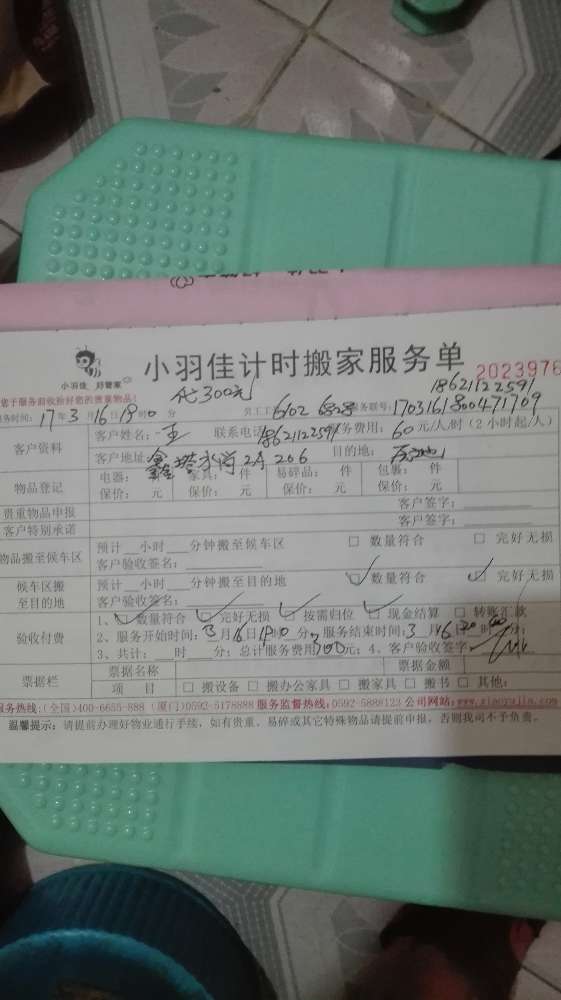 小羽佳 好管家
小羽佳计时搬家服务单
2023976
请于服务前收检好您的贵重物品!
代300元
18621122591
务时间: 17年3月16日19时0分 员工工 6102 务联号: 1703161800471709
客户资料
客户姓名: 王 联系电话 18621122591 务费用: 60元/人/时 (2小时起/人)
客户地址: 鑫塔水尚 206 目的地:
物品登记
电器: 件 家具: 件 易碎品: 件 包裹: 件
保价: 元 保价: 元 保价: 元 保价: 元
贵重物品申报 客户签字:
客户特别承诺 客户签字:
物品搬至候车区
预计 小时 分钟搬至候车区 □ 数量符合 □ 完好无损
客户验收签名:
候车区搬至目的地
预计 小时 分钟搬至目的地 ☑ 数量符合 ☑ 完好无损
客户验收签名:
验收付费
1、☑ 数量符合 ☑ 完好无损 ☑ 按需归位 ☑ 现金结算 □ 转账汇款
2、服务开始时间: 3月16日19时0分; 服务结束时间: 3月16日20时 分;
3、共计: 时 分; 总计服务费用 300元; 4、客户验收签字
票据栏
票据名称 票据金额
项 目 □ 搬设备 □ 搬办公家具 □ 搬家具 □ 搬书 □ 其他:
服务热线: (全国)400-6655-888 (厦门)0592-5178888 服务监督热线: 0592-5888123 公司网站: www.xiaoyujia.com
温馨提示: 请提前办理好物业通行手续, 如有贵重、易碎或其它特殊物品请提前申报, 否则我司不予负责。